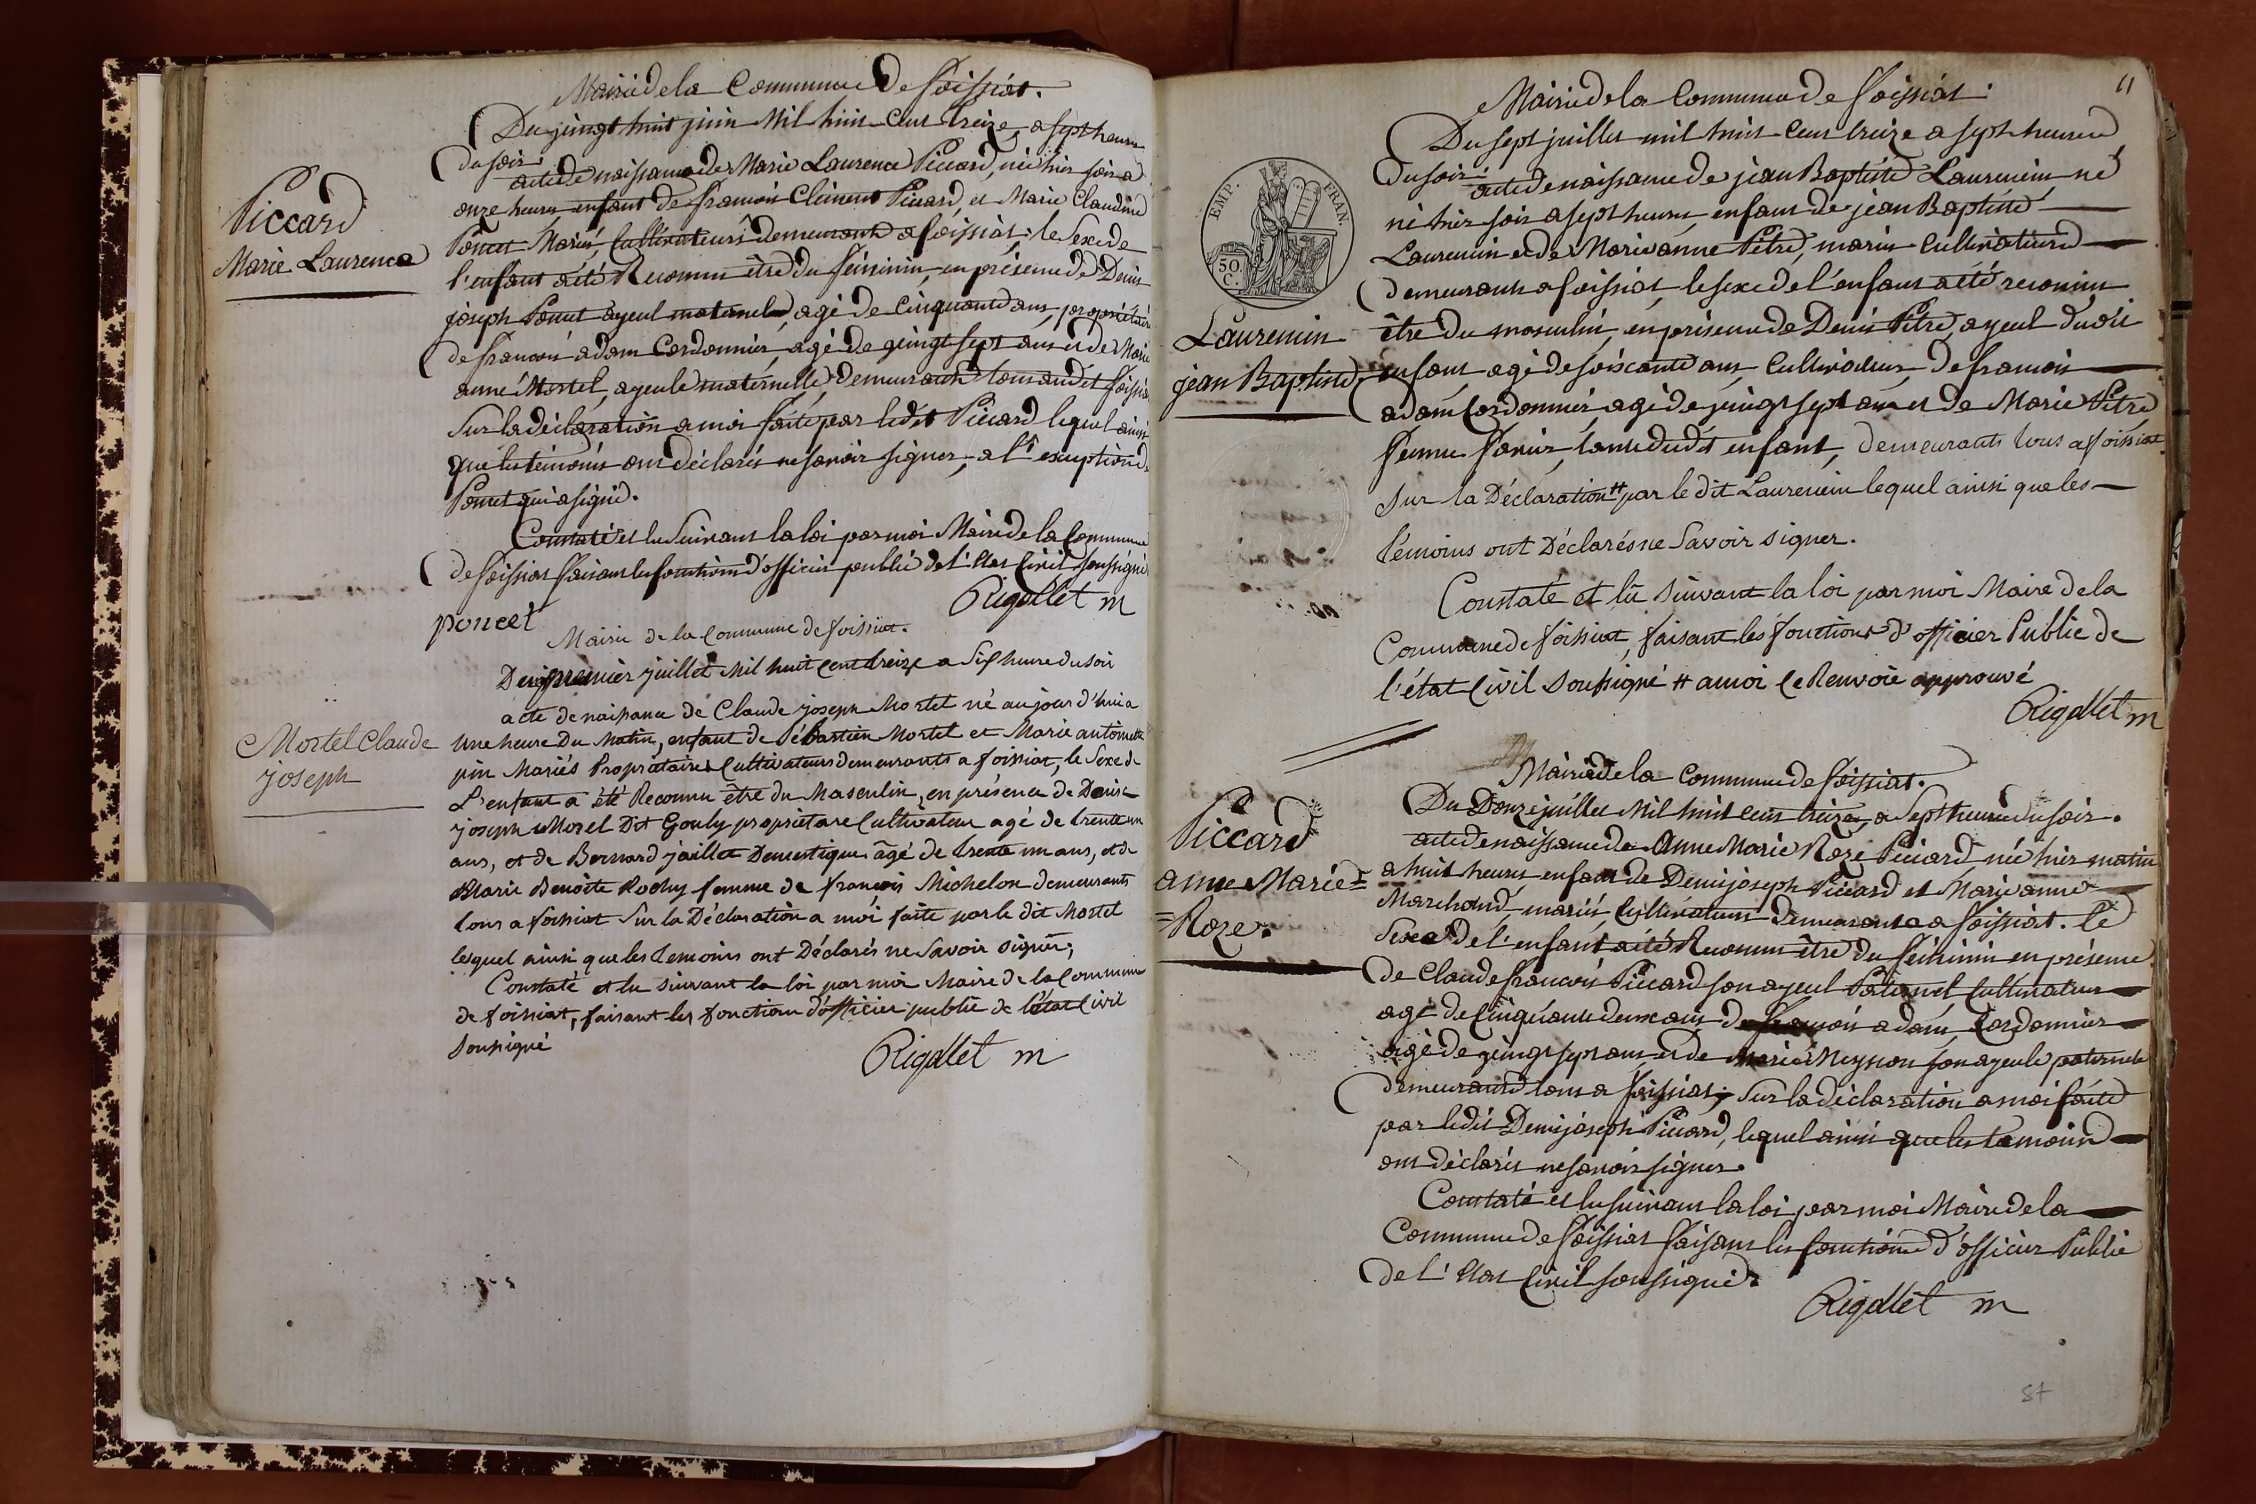 Mairie de la Commune de foissiat.
Du vingt huit juin Mil huit Cent treize, a sept heures
du soir.
acte de naissance de Marie Laurence Piccard, née hier soir a
onze heures enfant de francois Clément Piccard, et Marie Claudine
Poncet Mariés, Cultivateurs demeurants a foissiat; le Sexe de
l'enfant a été Reconnu être du féminin, en présence de Denis
joseph Poncet ayeul maternel, agé de Cinquante ans, propriétaire
de francois adam Cordonnier, agé de vingt sept ans et de Marie
anne Mortel, ayeule maternelle, demeurants tous audit foissiat
Sur la déclaration a moi faite par ledit Piccard lequel ainsi
que les témoins ont déclarés ne savoir signer, a l'exception de
Poncet qui a signé.
Constaté et lu Suivant la loi par moi Maire de la Commune
de foissiat faisant les fonctions d'officier public de l'Etat Civil soussigné
poncet
Rigollet m
Piccard
Marie Laurence
Mairie de la Commune de foissiat.
Du premier juillet Mil huit Cent treize a Six heure du Soir
acte de naissance de Claude joseph Mortel né aujourd'hui a
Une heure Du Matin, enfant de Sébastien Mortel et Marie antoinette
pin Mariés Propriétaires Cultivateurs demeurants a foissiat, le Sexe de
L'enfant a été Reconnu être du Masculin, en présence de Denis
joseph Morel Dit Gouly propriétaire Cultivateur agé de trente un
ans, et de Bernard jaillet Domestique âgé de trente un ans, et de
Marie Benoite Rochy femme de françois Michelon demeurants
tous a foissiat Sur la Déclaration a moi faite par le dit Mortel
lequel ainsi que les temoins ont Déclarés ne Savoir signer;
Constaté et lu suivant la loi par moi Maire de la Commune
de foissiat, faisant les fonction d'officier public de l'état Civil
Soussigné
Rigollet m
Mortel Claude
joseph
11
Mairie de la Commune de foissiat.
Du sept juillet mil huit Cent treize a sept heures
du soir.
acte de naissance de jean Baptiste Laurencin né
né hier soir a sept heures enfant de jean Baptiste
Laurencin et de Marie anne Pitre, mariés Cultivateurs
demeurants a foissiat, le sexe de l'enfant a été reconnu
être du masculin, en présence de Denis Pitre, ayeul dudit
enfant agé de soixante ans, Cultivateur, de francois
adam Cordonnier agé de vingt sept ans et de Marie Pitre
femme, tante dudit enfant, demeurants tous a foissiat
Sur la Déclaration # par le dit Laurencin lequel ainsi que les
témoins ont Déclarés ne Savoir signer.
Constaté et lu suivant la loi par moi Maire de la
Commune de foissiat, faisant les fonctions d'officier Public de
l'état Civil Soussigné # a moi Ce Renvoie approuvé
Rigollet m
EMP. FRAN.
50.
C.
Laurencin
jean Baptiste
Mairie de la Commune de foissiat.
Du Douze juillet Mil huit Cent treize, a Sept heures du soir.
acte de naissance de Anne Marie Roze Piccard née hier matin
a huit heures enfant de Denis joseph Piccard et Marie anne
Marchand, mariés Cultivateurs demeurants a foissiat. le
Sexe de l'enfant a été Reconnu être du féminin en présence
de Claude francois Piccard son ayeul Paternel Cultivateur
agé de Cinquante deux ans de francois adam, Cordonnier
agé de vingt sept ans et de Marie Meynon son ayeule paternelle
demeurants tous a foissiat; Sur la déclaration a moi faite
par ledit Denis joseph Piccard, lequel ainsi que les temoins
ont déclarés ne savoir signer.
Constaté et lu suivant la loi par moi Maire de la
Commune de foissiat faisant les fonctions d'officier Public
de l'Etat Civil soussigné.
Rigollet m
Piccard
anne Marie=
=Roze.